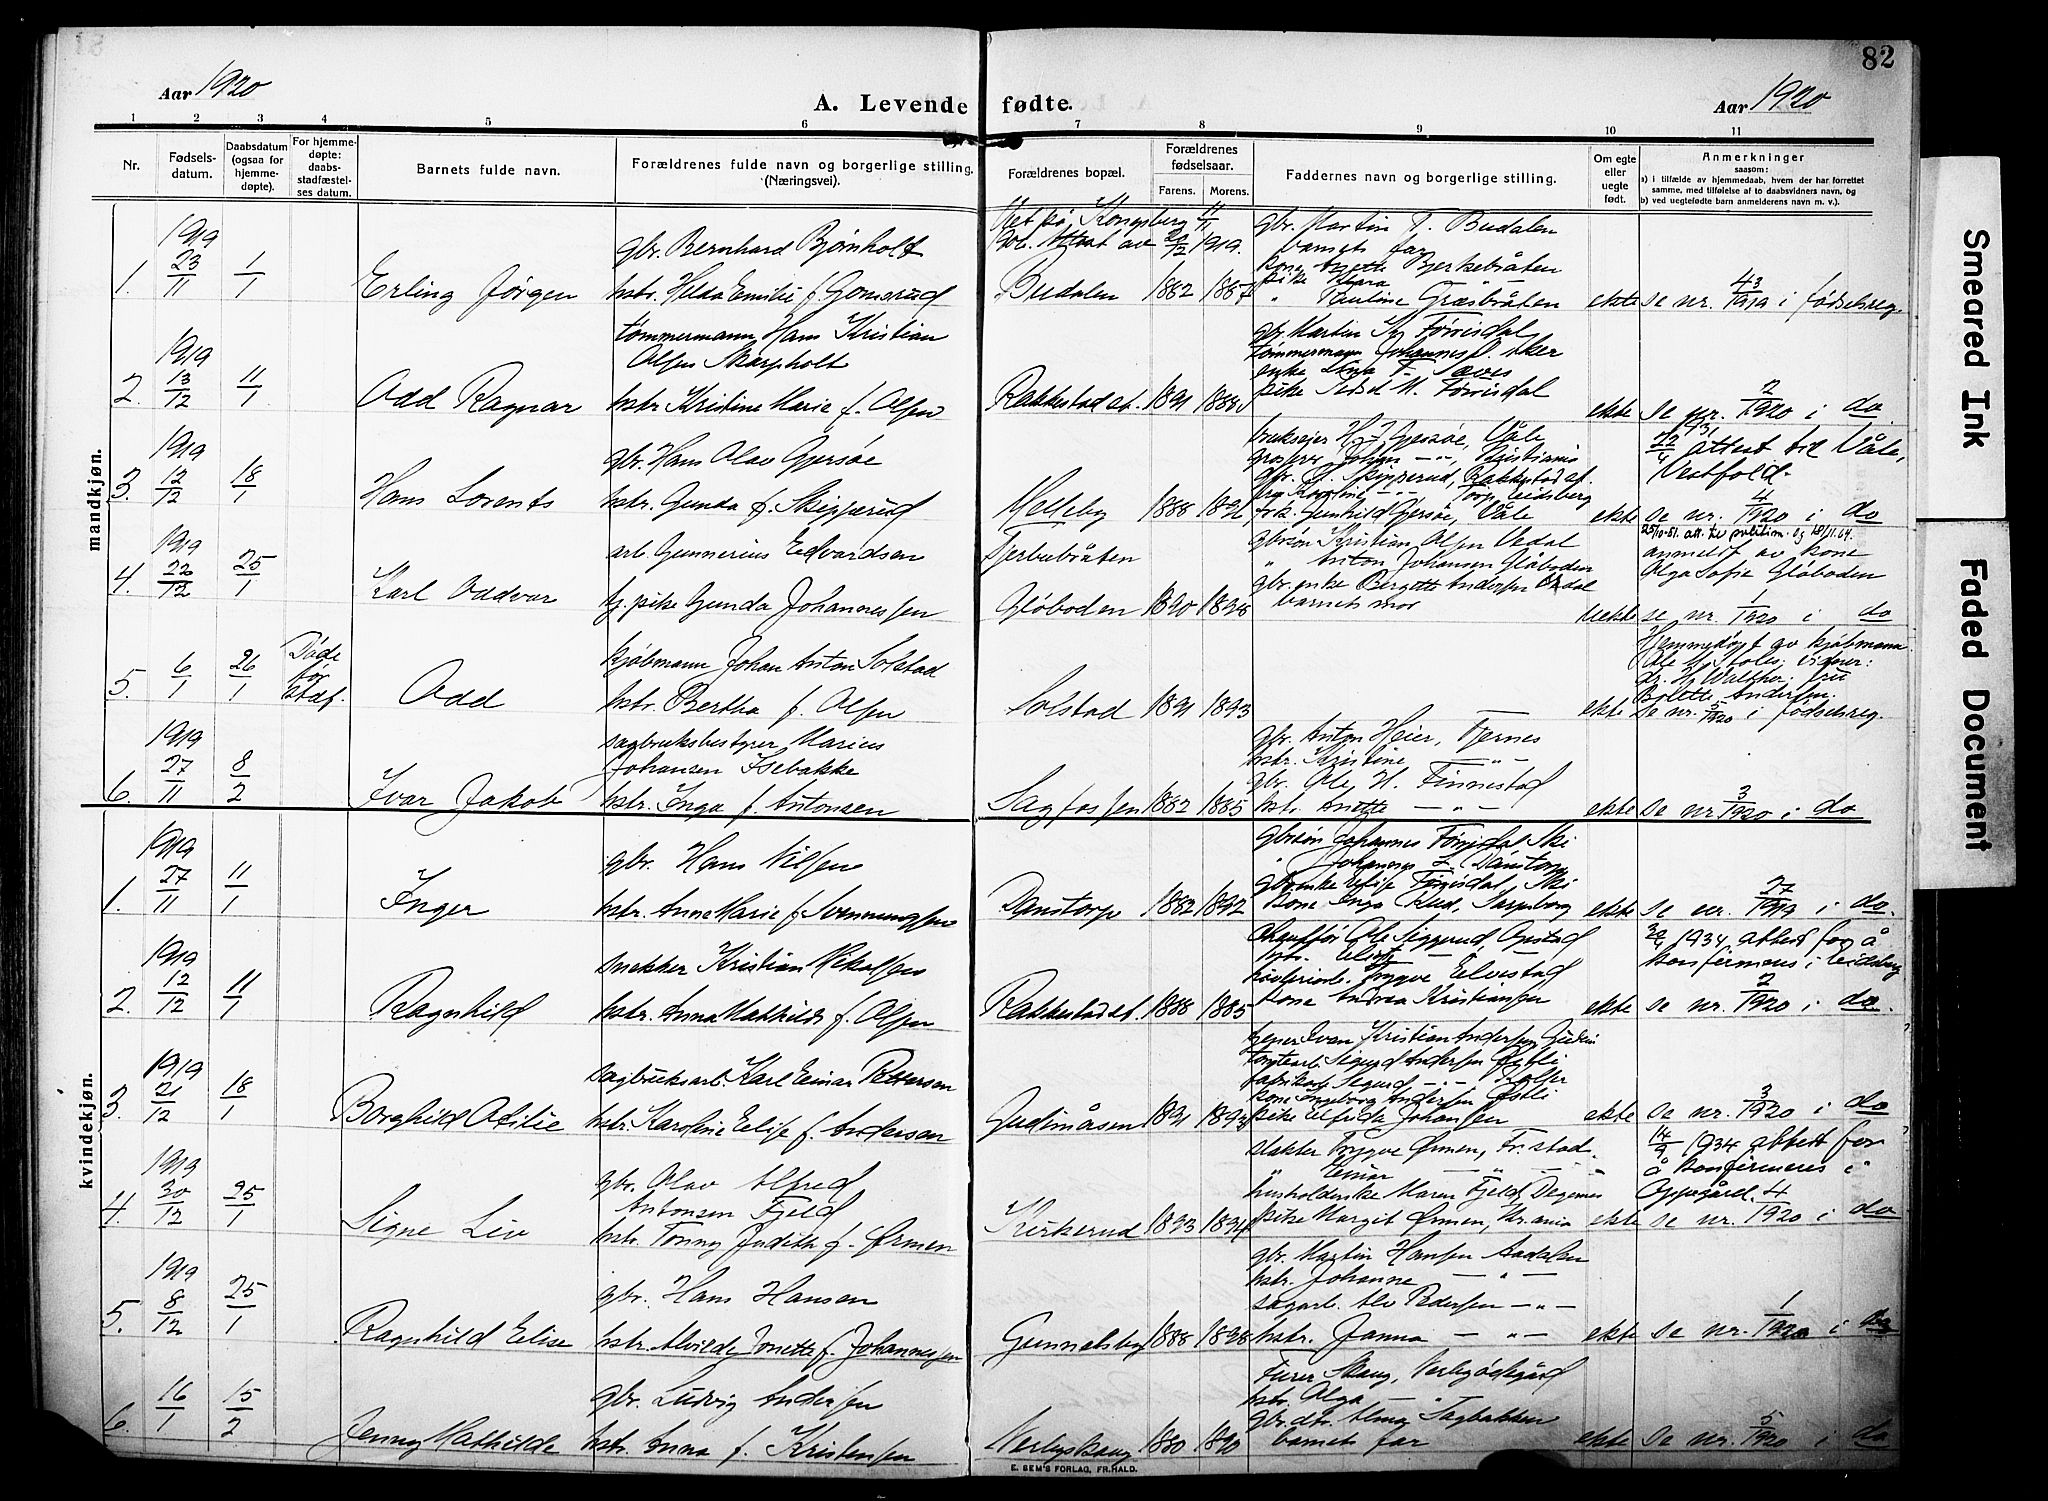 82
Aar 1920
A. Levende fødte.
Aar 1920
1 2 3 4 5 6 7 8 9 10 11
Nr.
Fødsels-
datum.
Daabsdatum
(ogsaa for
hjemme-
døpte).
For hjemme-
døpte:
daabs-
stadfæstel-
ses datum.
Barnets fulde navn.
Forældrenes fulde navn og borgerlige stilling.
(Næringsvei).
Forældrenes bopæl.
Forældrenes
fødselsaar.
Farens. Morens.
Faddernes navn og borgerlige stilling.
Om egte
eller
uegte
født.
Anmerkninger
saasom:
a) i tilfælde av hjemmedaab, hvem der har forrettet
samme, med tilføielse af to daabsvidners navn, og
b) ved uegtefødte barn anmelderens navn m. v.).
mandkjøn.
1. 1919 23/11 1/1
Erling Jørgen
gbr. Bernhard Bjørnholt
hstr. Helda Emilie f. Gomsrud
Viet på Kongsberg 11/1
Attest av 20/2 1919.
Budalen 1882 1887
gbr. Martin T. Budalen
barnets far
kone Anette Bjerkebråten
pike Klara
" Pauline Græsbråten
ekte
se nr. 43/1919 i fødselsreg.
2. 1919 13/12 11/1
Odd Ragnar
tømmermann Hans Kristian
Olsen Skarpholt
hstr. Kristine Marie f. Olsen
Rakkestad st. 1891 1888
gbr. Martin Førrisdal
tømmermann Johannes
enke
pike M. Førrisdal
ekte
se nr. 2/1920 i do
3. 1919 12/12 18/1
Hans Lorents
gbr. Hans Olav Gjersøe
hstr. Gunda f. Skipperud
Melleby 1888 1892
bruksejer H. J. Gjersøe, Våle
grosserer Johan -"- Kristiania
gbr. Skipperud, Rakkestad st.
Eidsberg
frk. Gunhild Gjersøe, Våle
ekte
22/4 attest til Våle,
Vestfold.
se nr. 4/1920 i do
4. 1919 22/12 25/1
Karl Oddvar
arb. Gunnerius Edvardsen
tj. pike Gunda Johannessen
Tjerbubråten
Gløboden 1890 1898
gbrsøn Kristian Olsen Vedal
" Anton Johansen Gløboden
gbr. enke Bergette Andersen Vedal
barnets mor
uekte
anmeldt av kone
Olga Sofie Gløboden
se nr. 1/1920 i do
5. 6/1 26/1
Døde
før
stadf.
Odd
kjøbmann Johan Anton Solstad
hstr. Bertha f. Olsen
Solstad 1891 1893
ekte
Hjemmedøpt av kjøbmann
Ole
dr. Walther, fru
Bolette Andersen.
se nr. 5/1920 i fødselsreg.
6. 1919 27/11 8/2
Ivar Jakob
sagbruksbestyrer Marius
Johansen Isebakke
hstr. Inga f. Antonsen
Sagfossen 1882 1885
gbr. Anton Heier, Tjernes
hstr. Kristine -"-
gbr. Ole H. Finnestad
hstr. Anette -"-
ekte
se nr 3/1920 i do
kvindekjøn.
1. 1919 27/11 11/1
Inger
gbr. Hans Nilsen
hstr. Anne Marie f. Svenningsen
Danstorp 1882 1892
gbrsøn Johannes Førrisdal Ski
" Johannes L. Danstorp
gbr.enke Elise Førrisdal, Ski
kone Inga Sarpsborg
ekte
se nr. 27/1919 i do.
2. 1919 12/12 11/1
Ragnhild
snekker Kristian Nikolsen
hstr. Anna Mathilde f. Olsen
Rakkestad st. 1888 1885
chauffør Ole Siggerud
hstr.
Trygve Elvestad
kone Andrea Kristiansen
ekte
1934 attest for å
konfirmeres i Eidsberg
se nr. 2/1920 i do.
3. 1919 21/12 18/1
Borghild Otilie
sagbruksarb. Karl Einar Pettersen
hstr. Karoline Elise f. Andersen
Gudimåsen 1891 1893
Ivan Kristian Andersen
Sigurd Andersen Østli
fabrikarb. Sigurd -"-
kone Ingeborg Andersen Østli
pike Elfrida Johansen
ekte
se nr. 3/1920 i do
4. 1919 30/12 25/1
Signe Liv
gbr. Olav Alfred
Antonsen Fjeld
hstr. Tonny Judith f. Ørmen
Kirkerud 1893 1894
slakter Trygve Ørmen, Fr.stad.
" Einar -"-
husholderske Maren Fjeld, Degernes
pike Margit Ørmen, Kr.ania
ekte
14/9 1934 attest for
å konfirmeres i
Oppegård.
se nr. 4/1920 i do
5. 1919 8/12 25/1
Ragnhild Elise
gbr. Hans Hansen
hstr. Alvilde Jonette f. Johannessen
Gunnelsby 1888 1898
gbr. Martin Hansen Aadalen
hstr. Johanne -"-
sagarb. Alv Pedersen -"-
hstr. Janna -"-
ekte
se nr. 1/1920 i do
6. 16/1 15/2
Jenny Mathilde
gbr. Ludvig Andersen
hstr. Anna f. Kristensen
Verbyskaug 1880 1890
Skaug, Verbyødegård
hstr. Olga -"-
gbr. dtr. Alma Sagbakken
barnets far
ekte
se nr. 5/1920 i do
E. SEM'S FORLAG, FR.HALD.
Smeared Ink
Faded Document